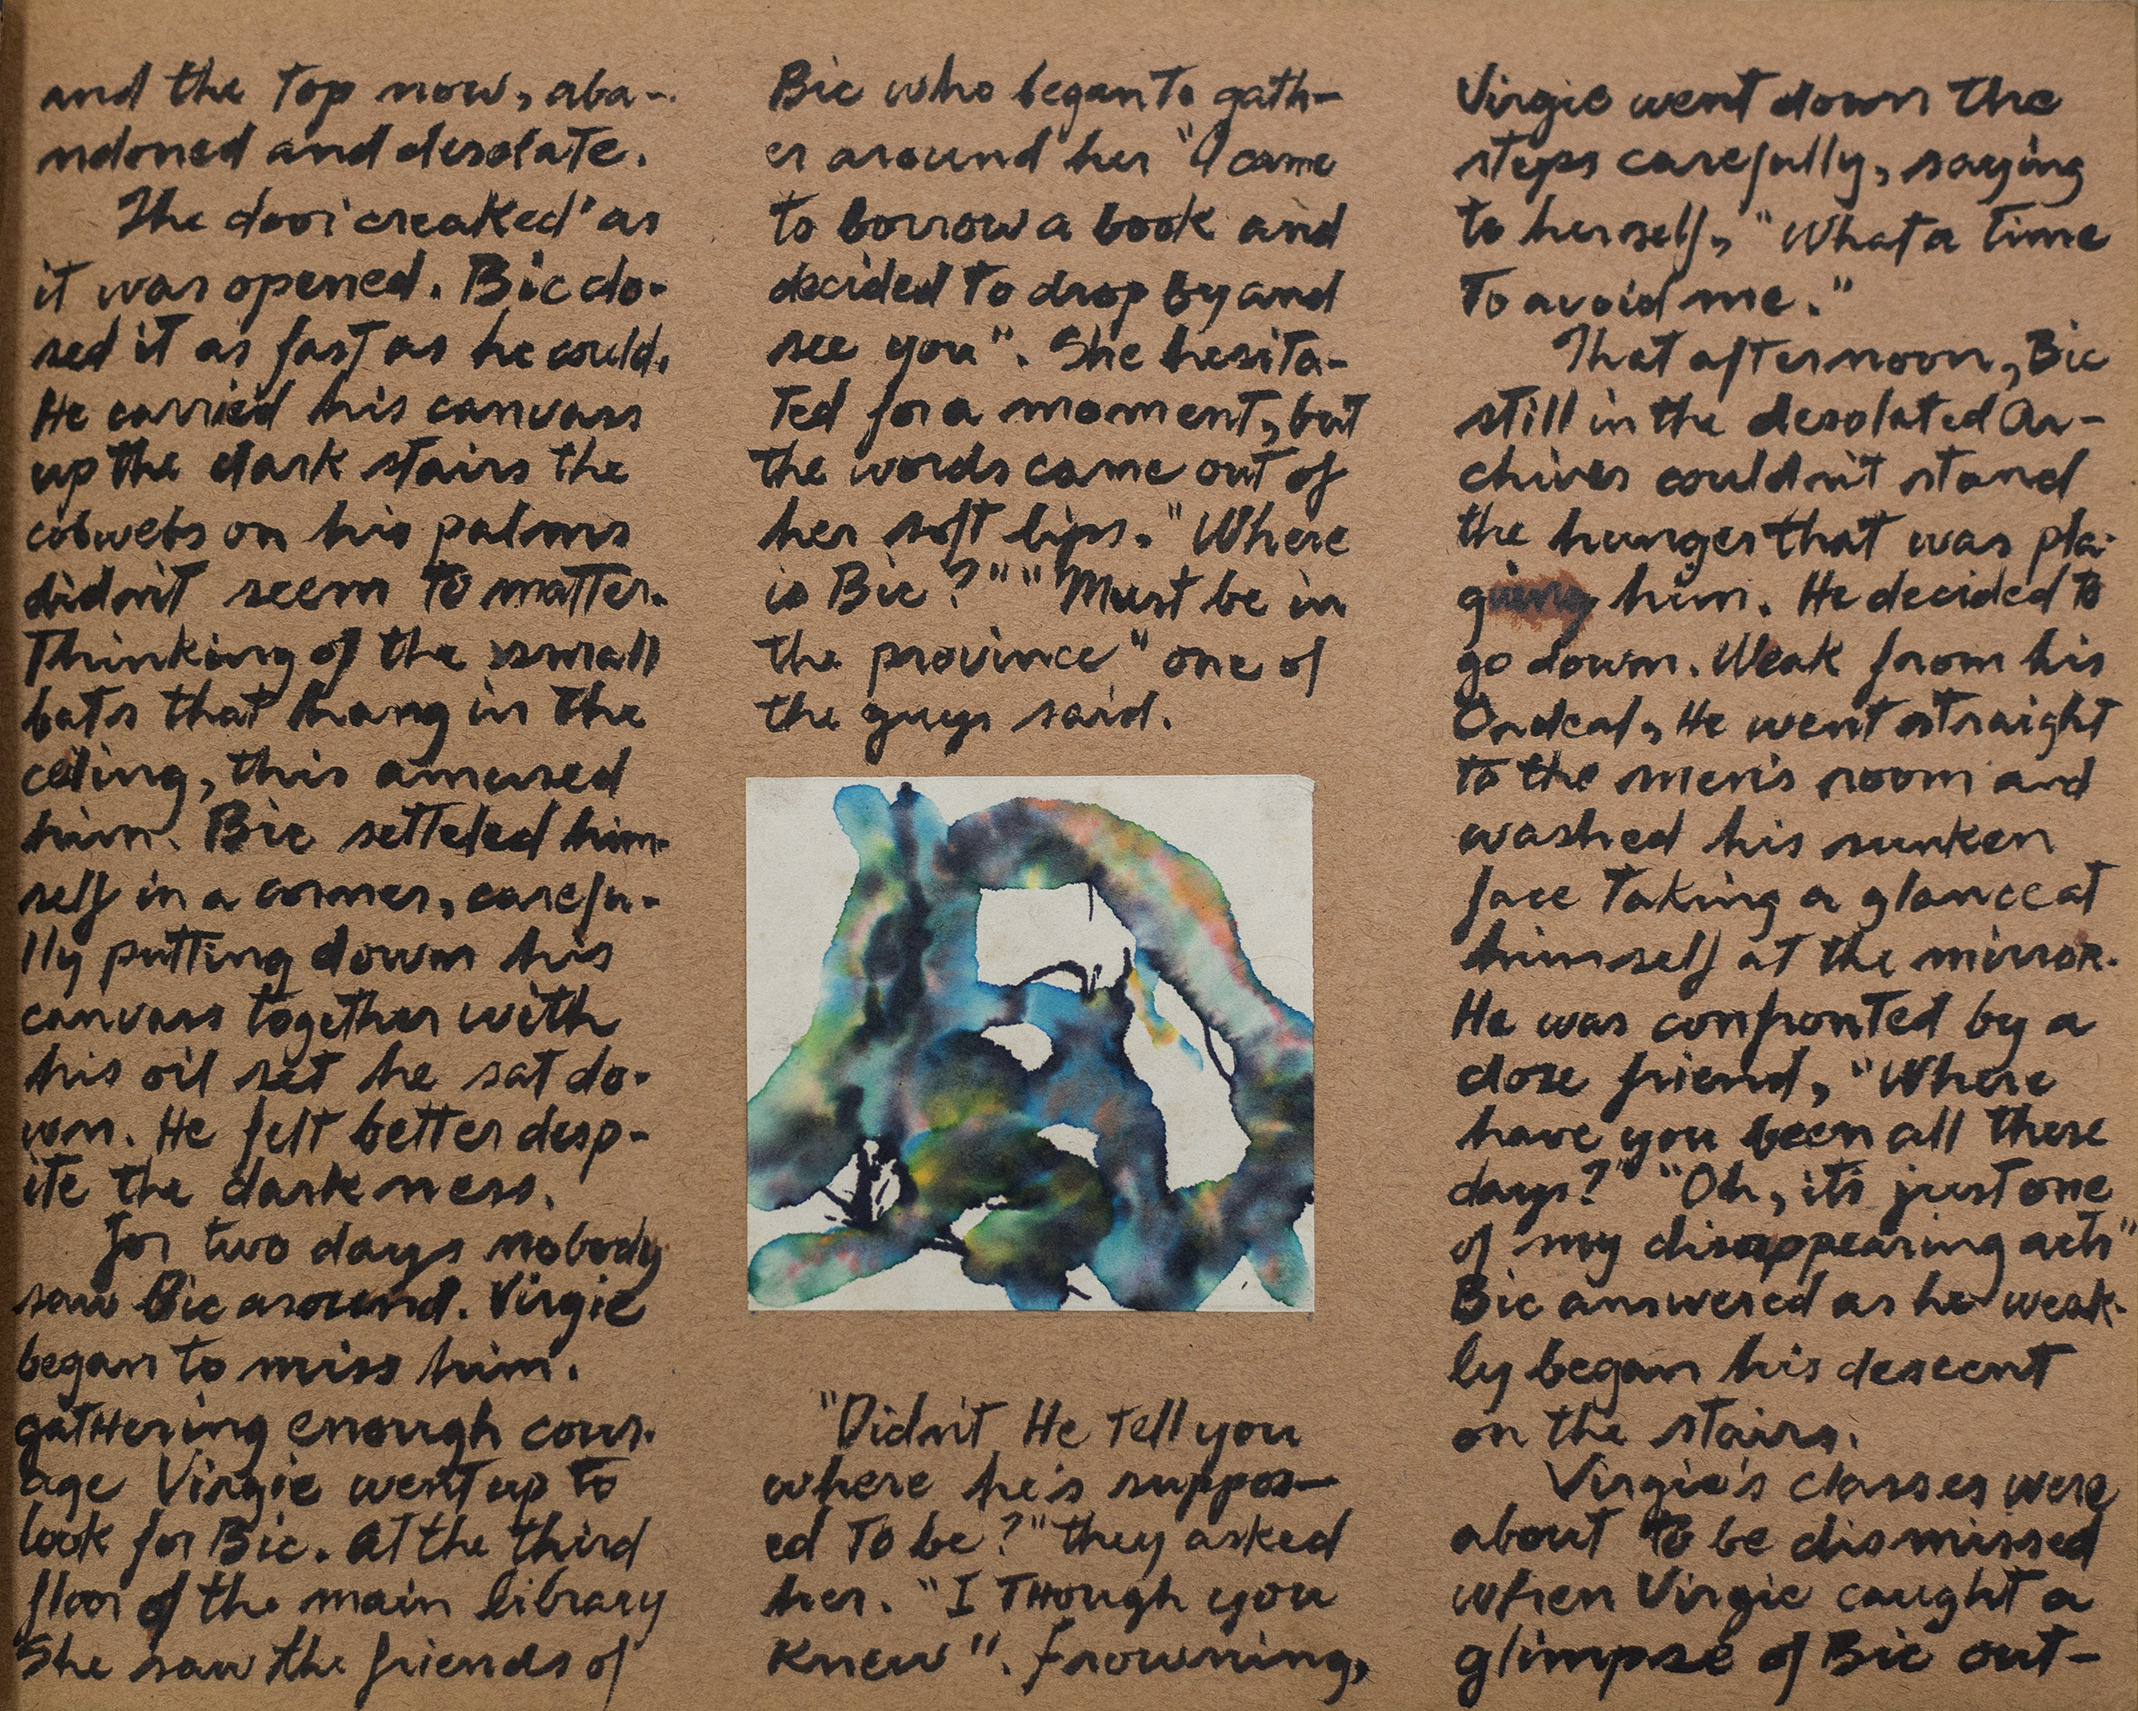 and the Top now, aba-
ndoned and desolate.
The door creaked as
it was opened. Bic clo-
sed it as fast as he could.
He carried his canvass
up the dark stairs the
cobwebs on his palms
didn't seem to matter.
Thinking of the small
bats that hang in the
ceiling, this amused
him. Bic setteled him-
self in a corner, carefu-
lly putting down his
canvass together with
his oil set he sat do-
wn. He felt better desp-
ite the darkness.
For two days nobody
saw Bic around. Virgie
began to miss him.
gathering enough cour-
age Virgie went up to
look for Bic. At the third
floor of the main library
She saw the friends of
Bic who began To gath-
er around her "I came
to borrow a book and
decided To drop by and
see you". She hesita-
Ted for a moment, but
the words came out of
her soft lips. "Where
is Bic?" "Must be in
the province" one of
the guys said.
"Didn't He Tell you
where he's suppos-
ed To be?" they asked
her. "I THough you
Knew". Frowning,
Virgie went down the
steps carefully, saying
to herself, "What a time
To avoid me."
That afternoon, Bic
still in the desolated Ar-
chives couldn't stand
the hunger that was pla-
guing him. He decided to
go down. Weak from his
Ordeal, He went straight
to the men's room and
washed his sunken
face Taking a glance at
himself at the mirror.
He was confronted by a
close friend, "Where
have you been all these
days?" "Oh, it's just one
of my disappearing acts"
Bic answered as he weak-
ly began his descent
on the stairs.
Virgie's classes were
about to be dismissed
when Virgie caught a
glimpse of Bic out-